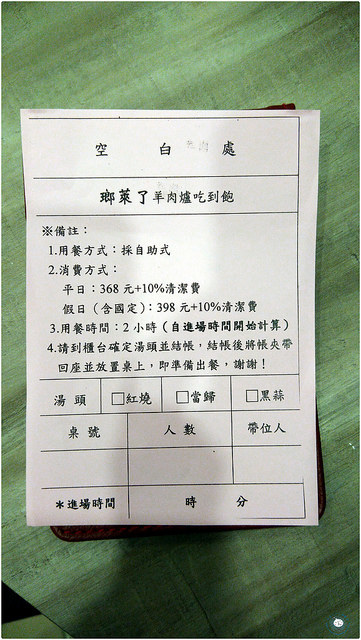 空 白 處
瑯萊了羊肉爐吃到飽
※備註：
1.用餐方式：採自助式
2.消費方式：
平日：368 元+10%清潔費
假日（含國定）：398 元+10%清潔費
3.用餐時間：2 小時（自進場時間開始計算）
4.請到櫃台確定湯頭並結帳，結帳後將帳夾帶
回座並放置桌上，即準備出餐，謝謝！
湯 頭 □紅燒 □當歸 □黑蒜
桌 號 人 數 帶位人
＊進場時間 時 分